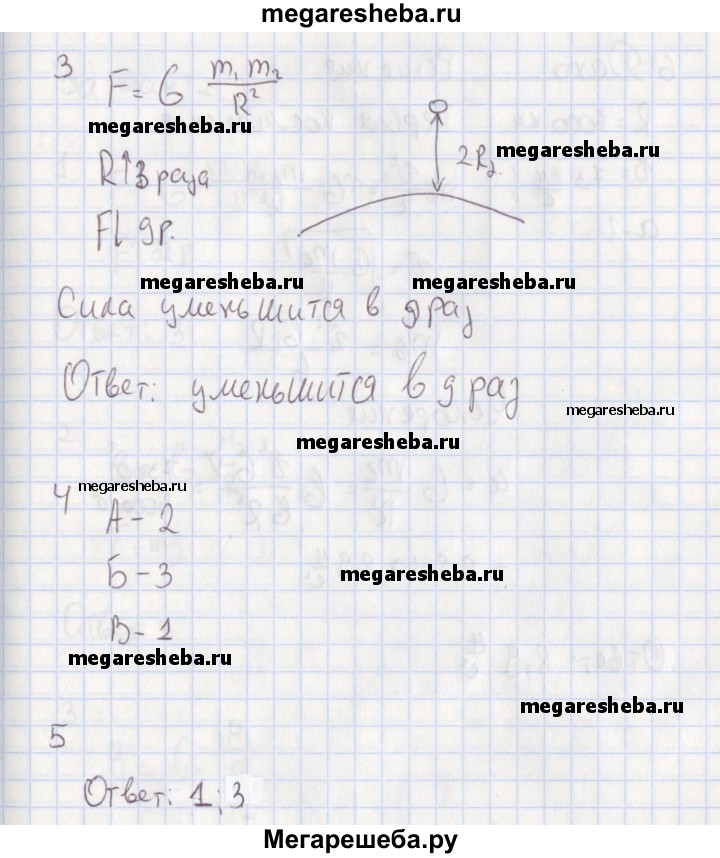 megaresheba.ru
3 F = G m₁ m₂ / R²
megaresheba.ru
2Rз
megaresheba.ru
R↑3 раза
F↓ 9 р.
megaresheba.ru
megaresheba.ru
Сила уменьшится в 9 раз
Ответ: уменьшится в 9 раз
megaresheba.ru
megaresheba.ru
megaresheba.ru
4
А - 2
Б - 3
megaresheba.ru
В - 1
megaresheba.ru
megaresheba.ru
5
Ответ: 1; 3
Мегарешеба.ру